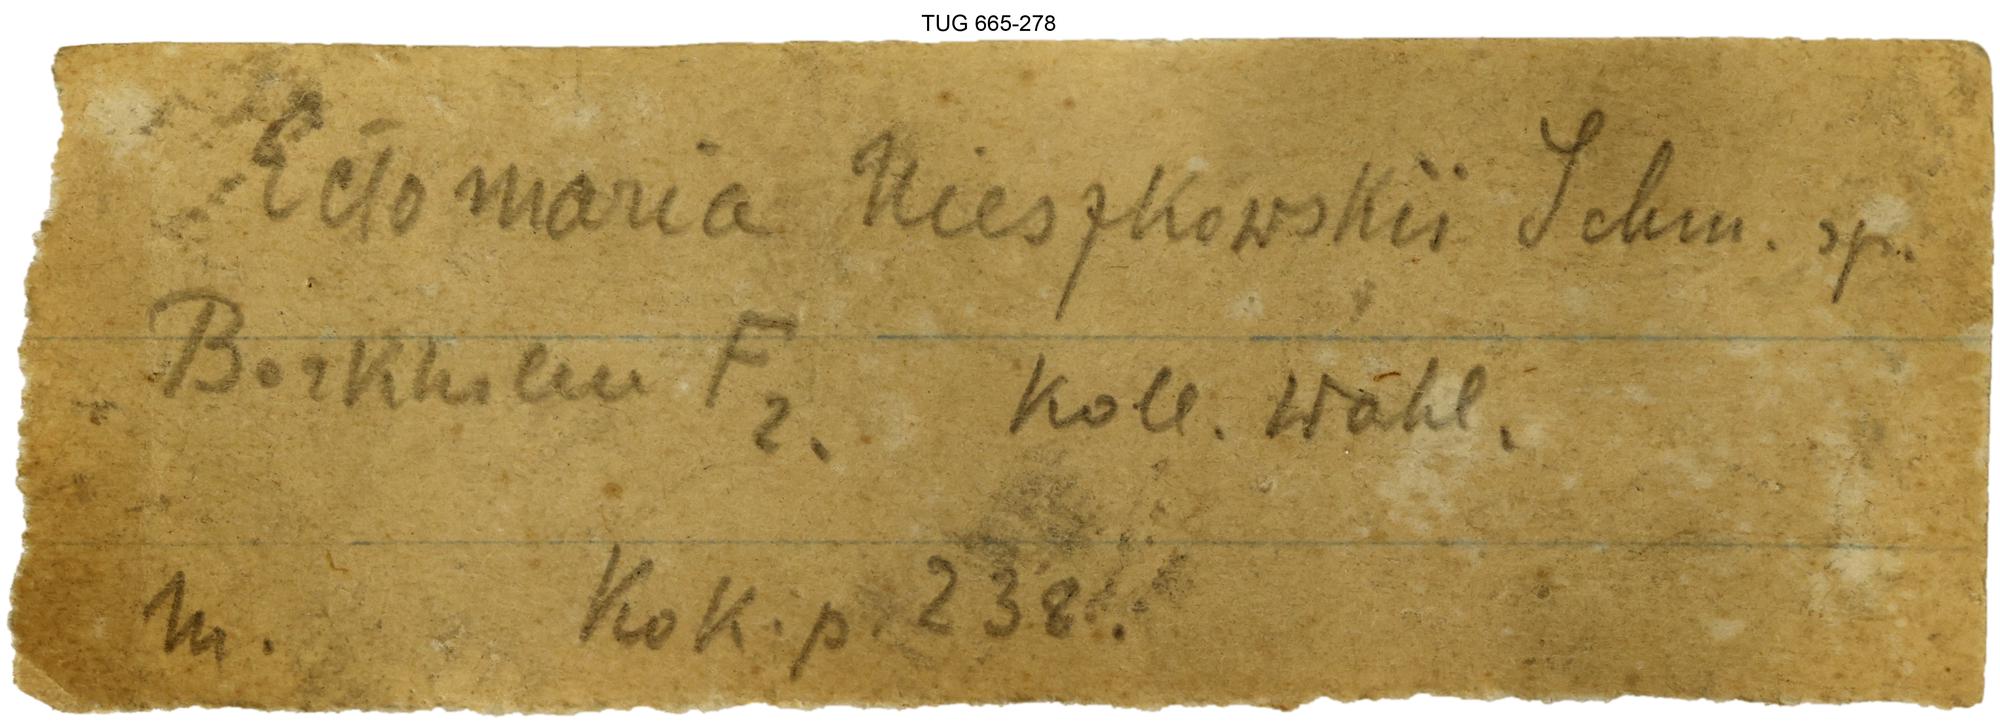 TUG 665-278
Ectomaria Nieszkowskii Schm. sp.
Borkholm F2. Koll. Wahl.
M. Kok. p. 238.